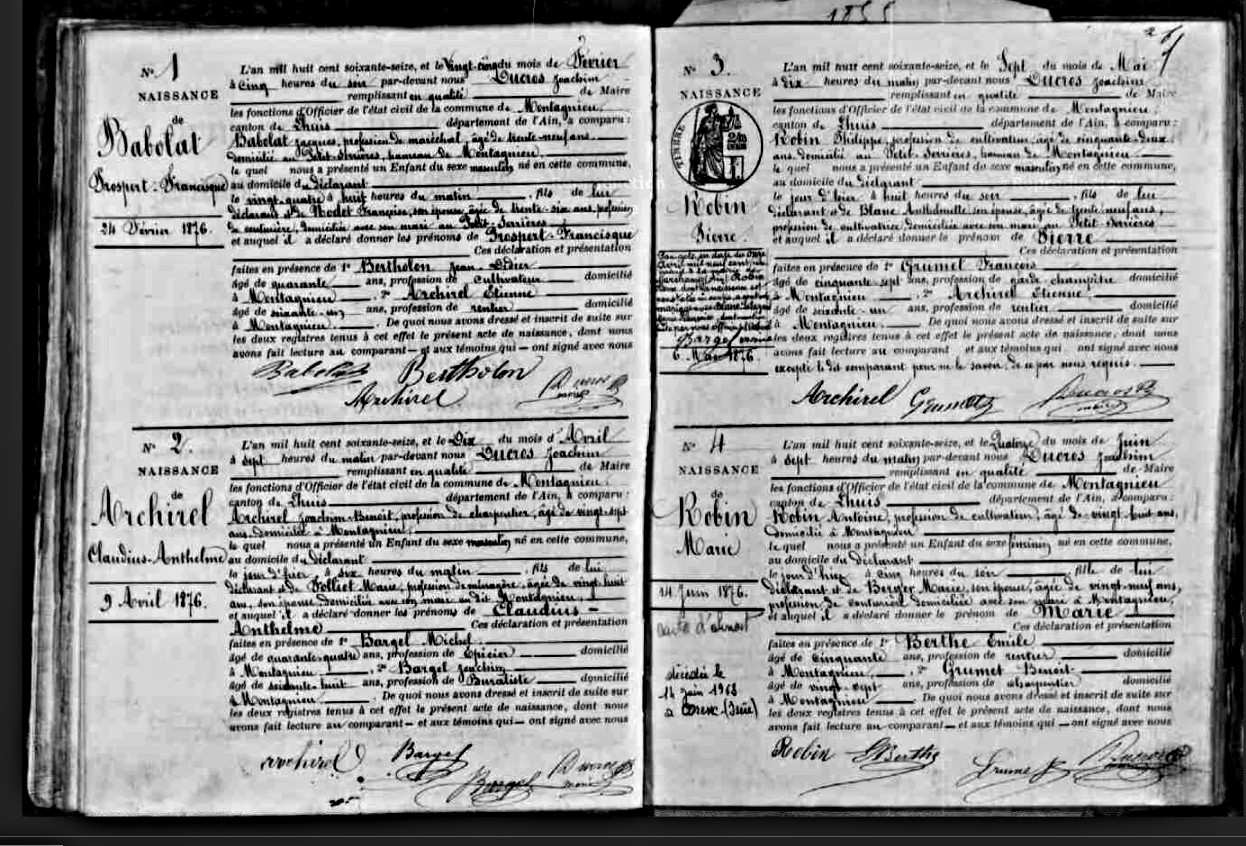 1855
N° 1
NAISSANCE
de
Babolat
Prospert-Francisque
24 Février 1876.
L'an mil huit cent soixante-seize, et le vingt-cinq du mois de Février
à cinq heures du soir par-devant nous Ducros Joachim
remplissant en qualité de Maire
les fonctions d'Officier de l'état civil de la commune de Montagnieu
canton de Lhuis département de l'Ain, a comparu :
Babolat Jacques, profession de maréchal, âgé de trente-neuf ans,
domicilié au Petit-Serrières, hameau de Montagnieu,
le quel nous a présenté un Enfant du sexe masculin né en cette commune,
au domicile du déclarant
le vingt-quatre à huit heures du matin, fils de lui
déclarant et de Rodet Françoise, son épouse, âgée de trente-six ans, profession
de couturière, domiciliée avec son mari au Petit-Serrières
et auquel il a déclaré donner les prénoms de Prospert-Francisque
Ces déclaration et présentation
faites en présence de 1° Bertholon Jean-Didier domicilié
âgé de quarante ans, profession de cultivateur
à Montagnieu, 2° Archirel Etienne
âgé de soixante-un ans, profession de rentier domicilié
à Montagnieu. De quoi nous avons dressé et inscrit de suite sur
les deux registres tenus à cet effet le présent acte de naissance, dont nous
avons fait lecture au comparant et aux témoins qui ont signé avec nous
Babolat Bertholon
Archirel Ducros
maire
N° 2
NAISSANCE
de
Archirel
Claudius-Anthelme
9 Avril 1876.
L'an mil huit cent soixante-seize, et le Dix du mois d'Avril
à sept heures du matin par-devant nous Ducros Joachim
remplissant en qualité de Maire
les fonctions d'Officier de l'état civil de la commune de Montagnieu
canton de Lhuis département de l'Ain, a comparu :
Archirel Joachim-Benoit, profession de charpentier, âgé de vingt-sept
ans, domicilié à Montagnieu,
le quel nous a présenté un Enfant du sexe masculin né en cette commune,
au domicile du déclarant
le jour d'hier à six heures du matin, fils de lui
déclarant et de Folliet Marie, profession de ménagère, âgée de vingt-huit
ans, son épouse domiciliée avec son mari au dit Montagnieu,
et auquel il a déclaré donner les prénoms de Claudius-
Anthelme Ces déclaration et présentation
faites en présence de 1° Bargel Michel
âgé de quarante-quatre ans, profession de Epicier domicilié
à Montagnieu, 2° Bargel Joachim
âgé de soixante-huit ans, profession de Buraliste domicilié
à Montagnieu De quoi nous avons dressé et inscrit de suite sur
les deux registres tenus à cet effet le présent acte de naissance, dont nous
avons fait lecture au comparant et aux témoins qui ont signé avec nous
archirel Bargel
Bargel Ducros
maire
N° 3.
NAISSANCE
TIMBRE
Robin
Pierre.
Bargel
6 Mai 1876.
L'an mil huit cent soixante-seize, et le Sept du mois de Mai
à Dix heures du matin par-devant nous Ducros Joachim
remplissant en qualité de Maire
les fonctions d'Officier de l'état civil de la commune de Montagnieu
canton de Lhuis département de l'Ain, a comparu :
Robin Philippe, profession de cultivateur, âgé de cinquante-deux
ans, domicilié au Petit-Serrières, hameau de Montagnieu
le quel nous a présenté un Enfant du sexe masculin né en cette commune,
au domicile du déclarant
le jour d'hier à huit heures du soir, fils de lui
déclarant et de Blanc Anthelmette, son épouse, âgée de trente-neuf ans,
profession de cultivatrice domiciliée avec son mari au Petit-Serrières
et auquel il a déclaré donner le prénom de Pierre
Ces déclaration et présentation
faites en présence de 1° Grumet François
âgé de cinquante-sept ans, profession de garde-champêtre domicilié
à Montagnieu, 2° Archirel Etienne
âgé de soixante-un ans, profession de rentier domicilié
à Montagnieu. De quoi nous avons dressé et inscrit de suite sur
les deux registres tenus à cet effet le présent acte de naissance, dont nous
avons fait lecture au comparant et aux témoins qui ont signé avec nous
excepté le dit comparant pour ne le savoir, de ce par nous requis.
Archirel Grumet Ducros
maire
N° 4
NAISSANCE
de
Robin
Marie
14 Juin 1876.
décédée le
14 Juin 1968
L'an mil huit cent soixante-seize, et le Quatorze du mois de Juin
à sept heures du matin par-devant nous Ducros Joachim
remplissant en qualité de Maire
les fonctions d'Officier de l'état civil de la commune de Montagnieu
canton de Lhuis département de l'Ain, a comparu :
Robin Antoine, profession de cultivateur, âgé de vingt-huit ans,
domicilié à Montagnieu
le quel nous a présenté un Enfant du sexe féminin né en cette commune,
au domicile du déclarant
le jour d'hier à cinq heures du soir, fille de lui
déclarant et de Berger Marie, son épouse, âgée de vingt-neuf ans,
profession de domiciliée avec son mari à Montagnieu,
et auquel il a déclaré donner le prénom de Marie
Ces déclaration et présentation
faites en présence de 1° Berthe Emile
âgé de cinquante ans, profession de rentier domicilié
à Montagnieu, 2° Grumet Benoit
âgé de vingt-sept ans, profession de charpentier domicilié
à Montagnieu De quoi nous avons dressé et inscrit de suite sur
les deux registres tenus à cet effet le présent acte de naissance, dont nous
avons fait lecture au comparant et aux témoins qui ont signé avec nous
Robin Berthe Grumet Ducros